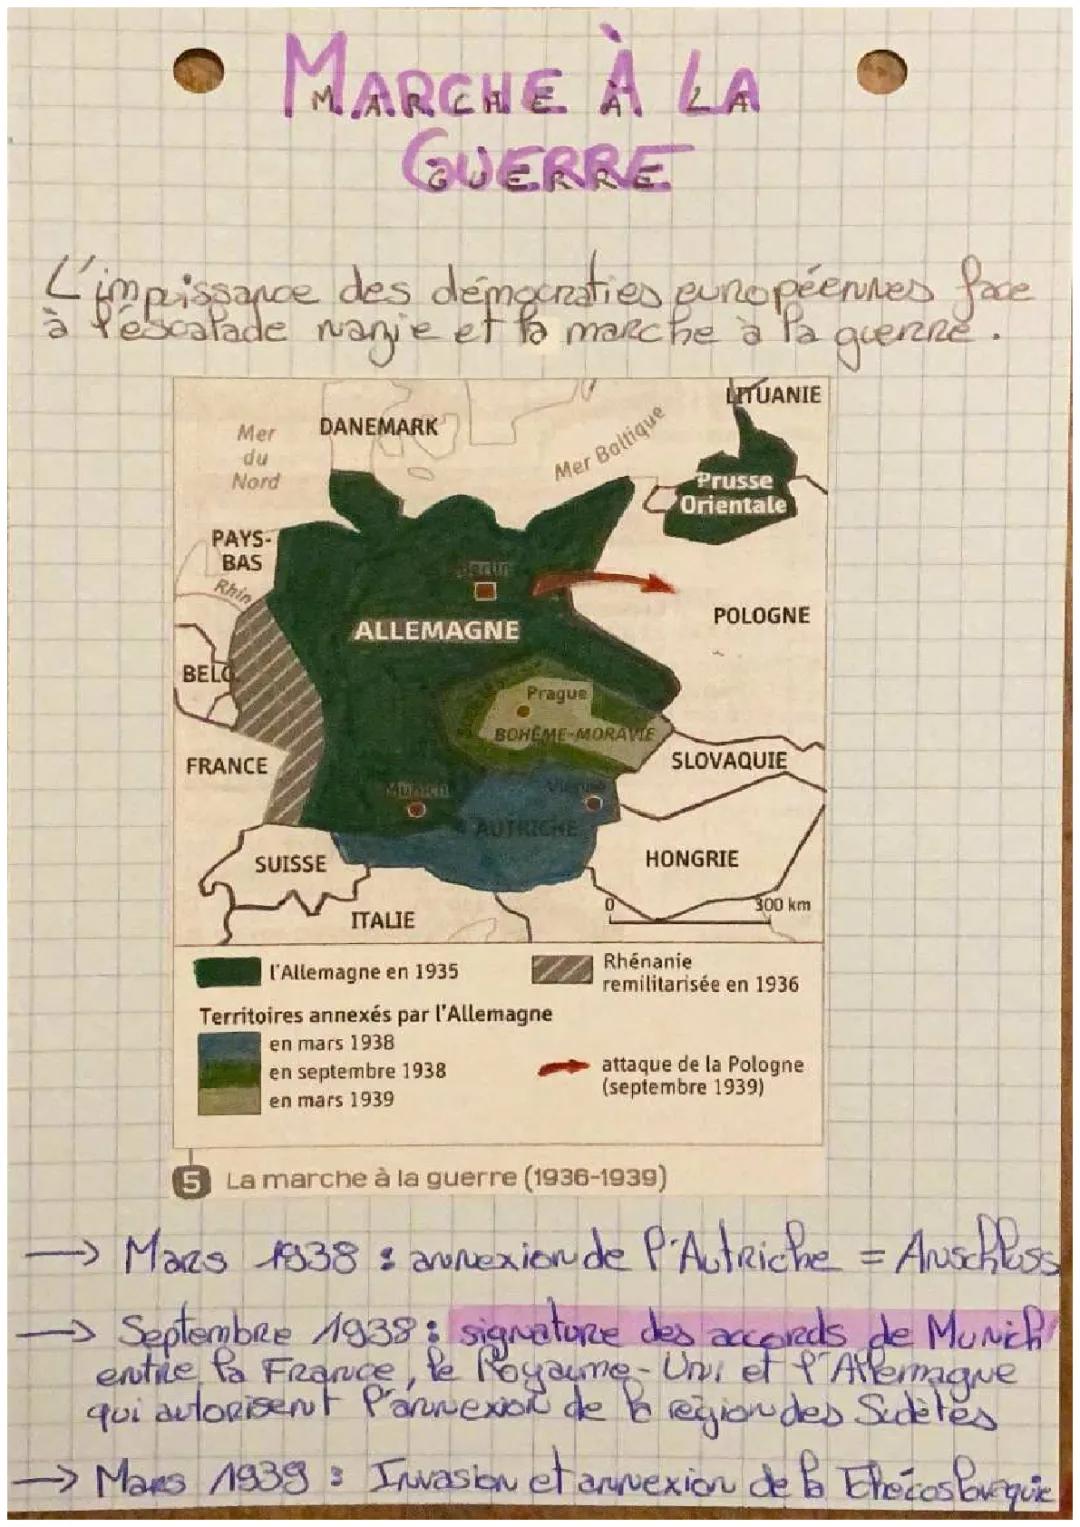 MARCHE À LA
MARCHE À LA
GUERRE
GUERRE
L'impuissance des démocraties européennes face
à l'escalade nazie et la marche à la guerre.
LITUANIE
DANEMARK
Mer
du
Nord
Mer Baltique
Prusse
Orientale
PAYS-
BAS
Rhin
Berlin
ALLEMAGNE
POLOGNE
BELG
Prague
BOHÊME-MORAVIE
FRANCE
SLOVAQUIE
Munich
Vienne
AUTRICHE
SUISSE
HONGRIE
ITALIE
0 300 km
l'Allemagne en 1935
Rhénanie
remilitarisée en 1936
Territoires annexés par l'Allemagne
en mars 1938
en septembre 1938
en mars 1939
attaque de la Pologne
(septembre 1939)
5 La marche à la guerre (1936-1939)
→ Mars 1938 : annexion de l'Autriche = Anschluss
→ Septembre 1938 : signature des accords de Munich
entre la France, le Royaume-Uni et l'Allemagne
qui autorisent l'annexion de la région des Sudètes
→ Mars 1939 : Invasion et annexion de la Tchécoslovaquie